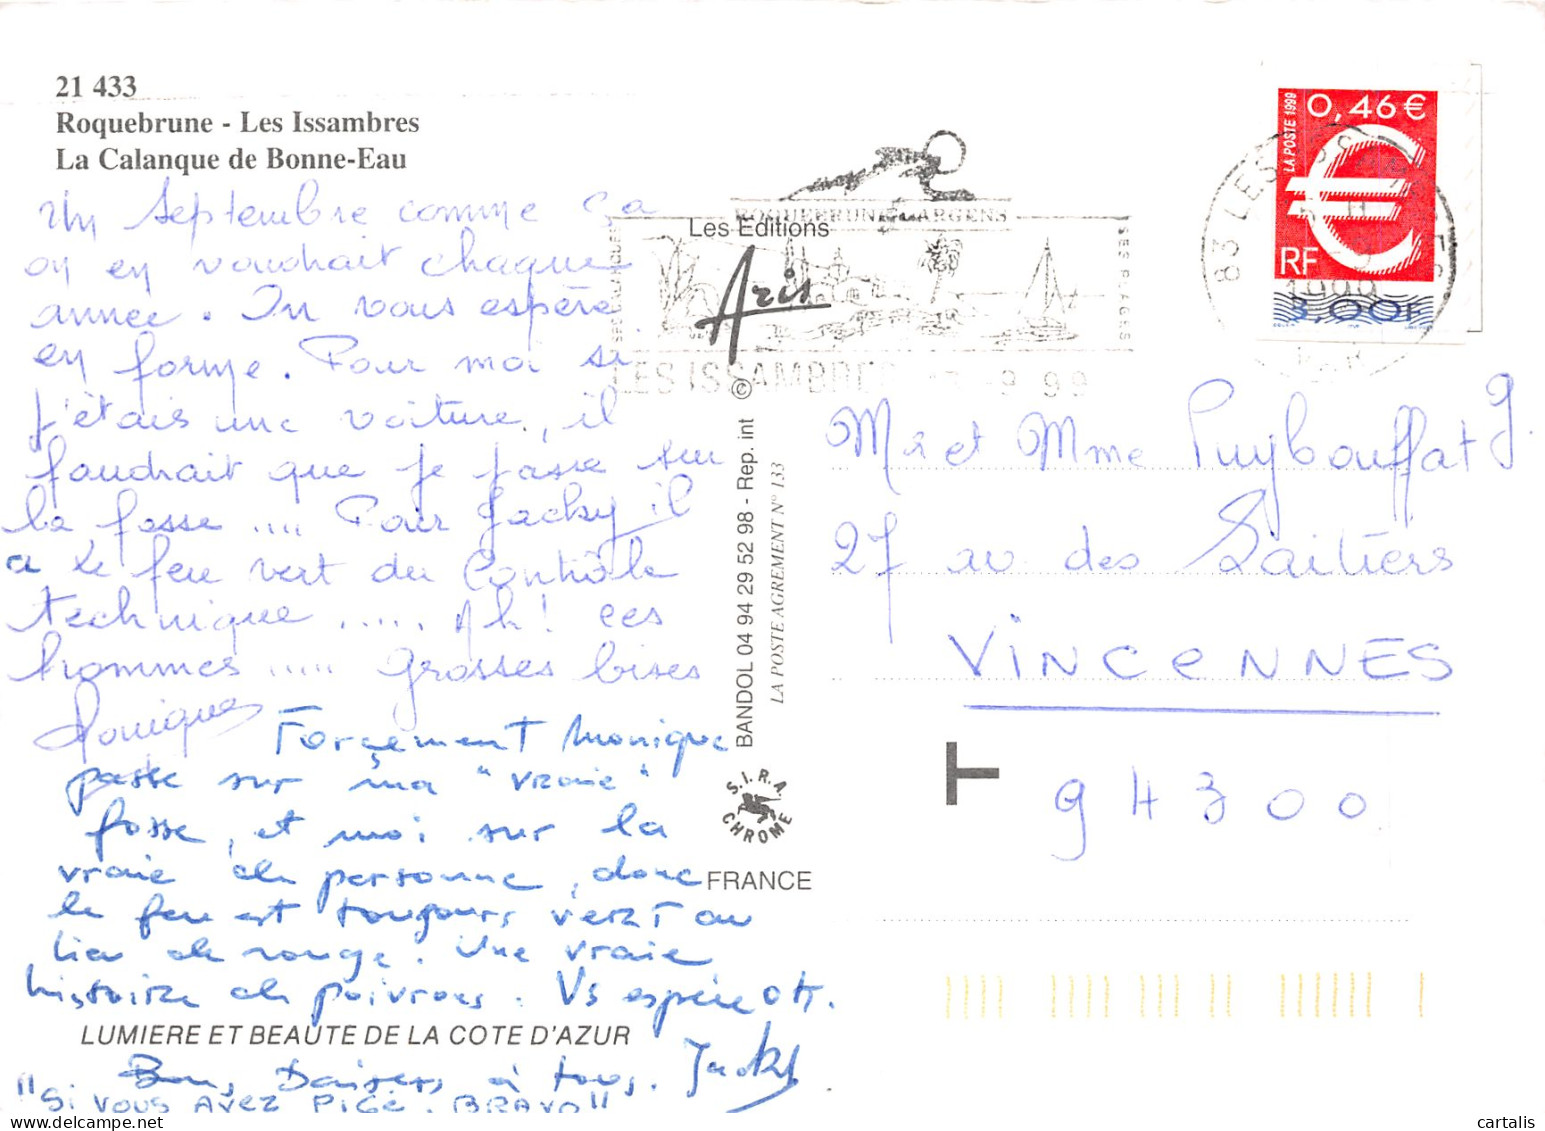 21 433
Roquebrune - Les Issambres
La Calanque de Bonne-Eau
Un Septembre comme ça
on en voudrait chaque
année. On vous espère
en forme. Pour moi si
j'étais une voiture, il
faudrait que je passe sur
la fosse .... Pour Jacky il
a le feu vert du Contrôle
technique ..... Ah! ces
hommes ..... grosses bises
Monique
Forcement Monique
passe sur ma "vraie"
fosse, et moi sur la
vraie de personne, donc
le feu est toujours vert au
lieu de rouge. Une vraie
histoire de poivrots. Vs espère OK.
LUMIERE ET BEAUTE DE LA COTE D'AZUR
Baisers à tous. Jacky
"SI VOUS AVEZ PIGÉ. BRAVO"
ROQUEBRUNE ARGENS
SES PLAGES
LES ISSAMBRES 9 99
Les Editions
Aris
©
BANDOL 04 94 29 52 98 - Rep. int
LA POSTE AGREMENT N° 133
S.I.R.A.
CHROME
FRANCE
LA POSTE 1999
0,46 €
€
RF
3,00F
83 LES ISS
1999
Mr et Mme Puybouffat G.
27 av des Laitiers
VINCENNES
T
94300
cartalis